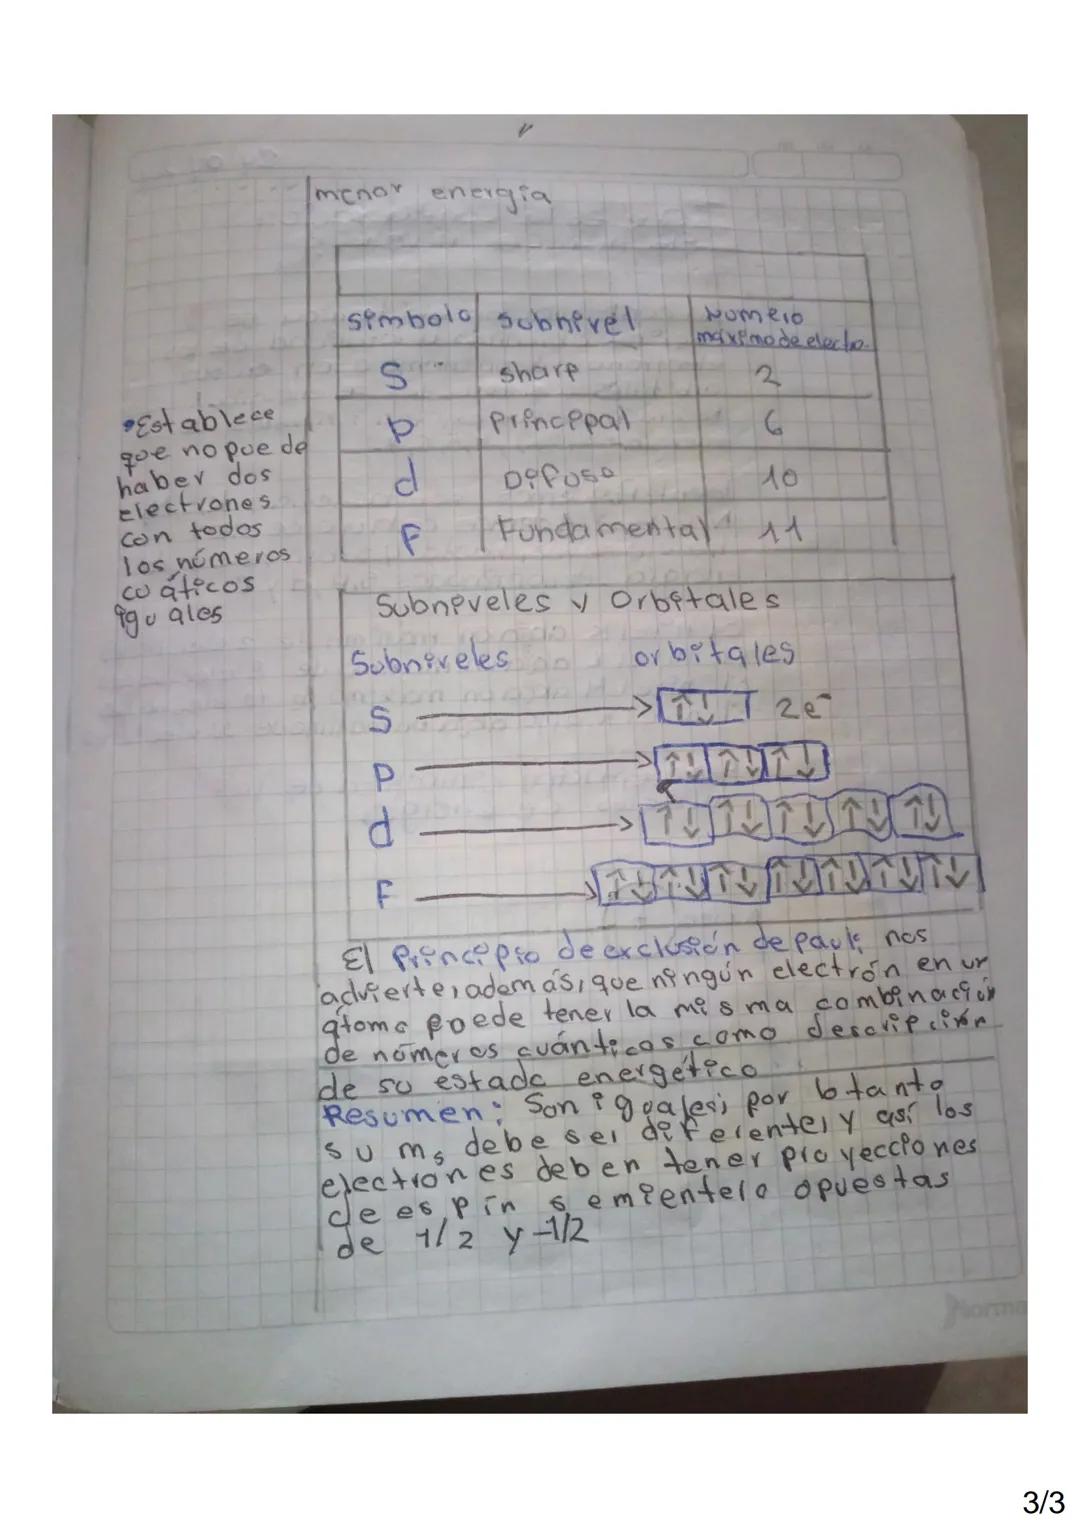 menor energía
símbolo subnivel Numero
máximo de electro.
S sharp 2
p principal 6
d Difuso 10
F Fundamental 11
•Establece
que no puede
haber dos
electrones
con todos
los números
cuáticos
iguales
Subniveles y Orbitales
Subniveles orbitales
S 2e⁻
p
d
F
El Principio de exclusión de pauli nos
advierte, además, que ningún electrón en un
átomo puede tener la misma combinación
de números cuánticos como descripición
de su estado energético
Resumen: Son iguales; por lo tanto
su ms debe ser diferente, y así los
electrones deben tener proyecciones
de espín semientero opuestas
de 1/2 y -1/2
Norma
3/3